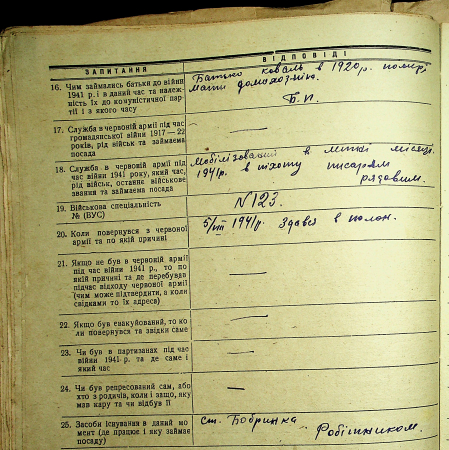 ЗАПИТАННЯ
ВІДПОВІДІ
16. Чим займались батьки до війни
1941 р. і в даний час та належ-
ність їх до комуністичної пар-
тії і з якого часу
Батько коваль в 1920 р. помер
Мати домохозяйка.
Б. п.
17. Служба в червоній армії під час
громадянської війни 1917—22
років, рід військ та займаєма
посада
—
18. Служба в червоній армії під
час війни 1941 року, який час,
рід військ, останнє військове
звання та займаєма посада
Мобілізований в липні місяці
1941 р. в піхоту писарем
рядовим.
19. Військова спеціяльність
№ (ВУС)
N 123.
20. Коли повернувся з червоної
армії та по якій причині
5/VIII 1941 р. Здався в полон.
21. Якщо не був в червоній армії
під час війни 1941 р., то по
якій причині та де перебував
підчас відходу червоної армії
(чим може підтвердити, а коли
свідками то їх адреса)
—
22. Якщо був евакуйований, то ко-
ли повернувся та звідки саме
—
23. Чи був в партизанах під час
війни 1941 р. та де саме і
який час
—
24. Чи був репресований сам, або
хто з родичів, коли і защо, яку
мав кару та чи відбув її
—
25. Засоби існування в даний мо-
мент (де працює і яку займає
посаду)
ст. Бобринка
Робітником.